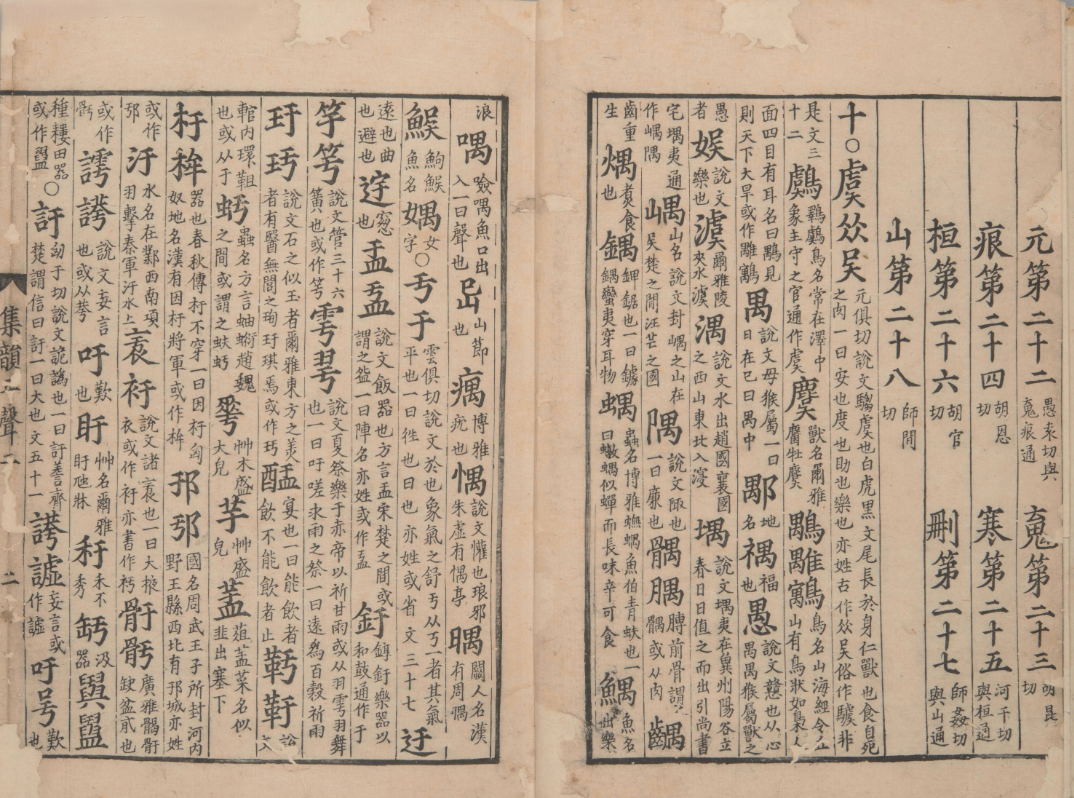 元第二十二愚袁切與䰟痕通䰟第二十三胡昆切
痕第二十四胡恩切寒第二十五河干切與桓通
桓第二十六胡官切刪第二十七師姦切與山通
山第二十八師間切
十○虞㕦吴元俱切說文騶虞也白虎黑文尾長於身仁獸也食自死之肉一曰安也度也助也樂也亦姓古作㕦吴俗作驉非
是文三十二鸆鸆鳥名常在澤中象主守之官通作虞麌獸名爾雅麕牡麌鳥名山海經令丘山有鳥狀如梟人
面四目有耳名曰見則天下大旱或作禺說文母猴屬一曰日在巳曰禺中鄅地名禑福也愚說文戇也从心禺禺猴屬獸之
愚者娛說文樂也澞爾雅陵夾水澞湡說文水出趙國襄國之西山東北入㴆堣說文堣夷在冀州陽谷立春日日值之而出引尚書
宅堣夷通作嵎隅嵎山名說文封嵎之山在吳楚之閒汪芒之國隅說文陬也一曰廉也髃腢髆前骨謂髃或从肉齵
齒重生煱煑食也鍝鉀鋸也一曰鐻鍝蠻夷穿耳物蝺蟲名博雅蟱蝺魚伯青蚨也一曰蠀蝺似蟬而長味辛可食鰅魚名出樂
浪喁噞喁魚口出入一曰聲也山節也㾒博雅疣也㥥說文懽也琅邪朱虛有㥥亭䁩闕人名漢有周䁩
䱀䱂䱀魚名媀女字○亏于雲俱切說文於也象氣之舒亏从丂一者其氣平也一曰徃也曰也亦姓或省文三十七迂
遠也曲也避也窓也盂說文飯器也方言盂宋楚之間或謂之㿿一曰陣名亦姓或作釪錞釪樂器以和鼓通作于
竽說文管三十六簧也或作雩說文夏祭樂于赤帝以祈甘雨或从羽雩羽舞也一曰吁嗟求雨之祭一曰遠為百穀祈雨
玗說文石之似玉者爾雅東方之羙者有醫無閭之珣玗琪焉或作宴也一曰能飲者飲不能飲者止靬說文
輨内環靼也或从于虶蟲名方言蚰蜒趙魏之間或謂之蚨虶艸木盛大皃芋艸盛皃葅菜名似韭出塞下
杅桙器也春秋傳杅不穿一曰因杅匈奴地名漢有因杅將軍或作桙邘國名周武王子所封河内野王縣西北有邘城亦姓
或作邘汙水名在鄴西南項羽擊秦軍汙水上衧說文諸衧也一曰大掖衣或作衧亦書作骬廣雅䯏骬缺盆䯢也
或作說文妄言也或从㖀吁歎也盱艸名爾雅盱虺牀秄禾不秀釫器汲
種耬田器或作○訏匈于切說文詭譌也一曰訏謩齊楚謂信曰訏一曰大也文五十一謣譃妄言或作譃吁歎也
集韻平聲二
二